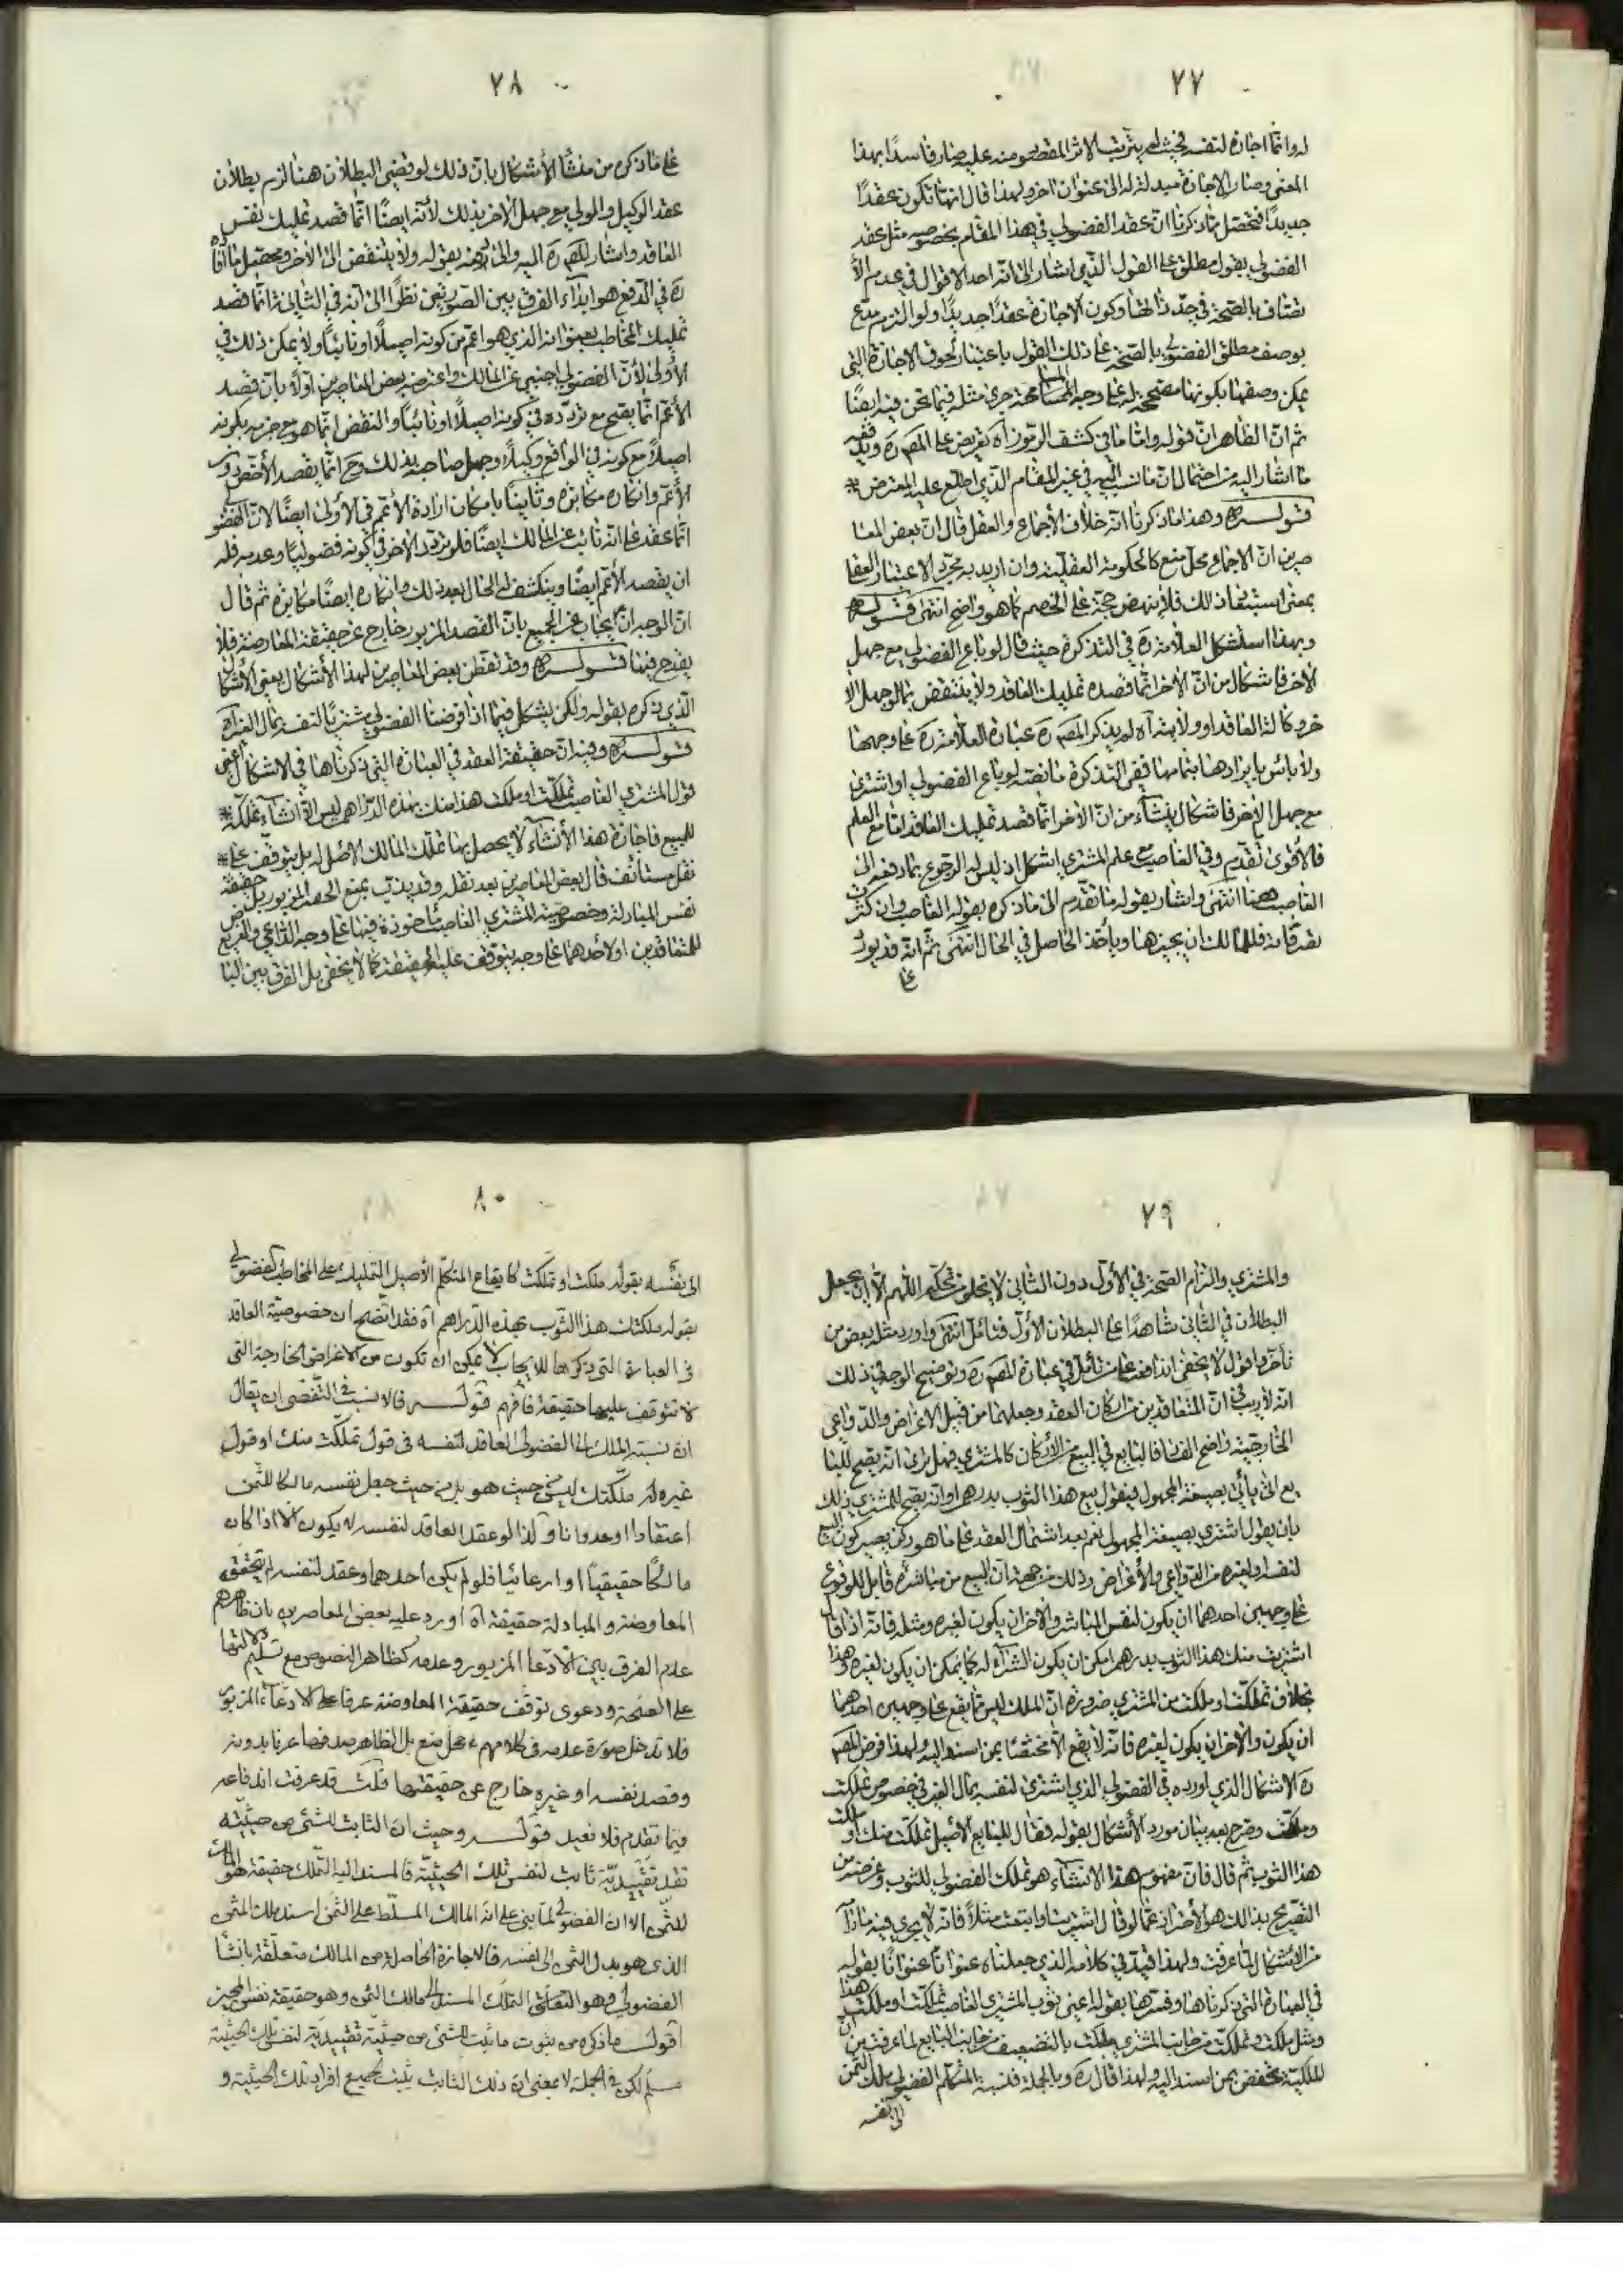 ٧٧
له وانما اجازه لنفسه فحيث لم يترتب الاثر المقصود منه عليه صار فاسدًا بهذا
المعنى وصار الاجازة مبدلة له الى عنوان اخر ولهذا قال انها تكون عقدًا
جديدًا فتحصل مما ذكرنا ان عقد الفضولي في هذا المقام بخصوصه مثل عقد
الفضولي بقول مطلق على القول الذي اشار الى انه احد الاقوال في عدم الا
تصاف بالصحة في حد ذاتها وكون الاجازة عقدًا جديدًا ولو التزم مدع
بوصف مطلق الفضولي بالصحة على ذلك القول باعتبار لحوق الاجازة التي
يمكن وصفها بكونها مصححة له على وجه المسامحة جرى مثله فيما نحن فيه ايضًا
ثم ان الظاهر ان قوله واما ما في كشف الرموز اه تعريض على المصره ويدفعه
ما اشار اليه من احتمال ان ما نسب اليه في غير المقام الذي اطلع عليه المعترض
قوله ره وهذا ما ذكرنا انه خلاف الاجماع والعقل قال ان بعض المعا
صرين ان الاجماع محل منع كالحكومة العقلية وان اريد به مجرد الاعتبار العقلا
بمعنى استبعاد ذلك فلا ينهض حجة على الخصم كما هو واضح انتهى قوله ره
وبهذا استشكل العلامة ره في التذكرة حيث قال لو باع الفضولي مع جهل
الاخر فاشكال من ان الاخر انما قصد تمليك العاقد ولا ينتقض بما لو جهل الا
خر وكالة العاقد او ولايته اه لم يذكر المصره عبارة العلامة ره على وجهها
ولا باس بايرادها بتمامها ففي التذكرة ما نصه لو باع الفضولي او اشترى
مع جهل الاخر فاشكال ينشأ من ان الاخر انما قصد تمليك العاقد اما مع العلم
فالاقوى ما تقدم وفي الغاصب مع علم المشتري اشكل اذ ليس له الرجوع بما دفعه الى
الغاصب هنا انتهى واشار بقوله ما تقدم الى ما ذكره بقوله الغاصب وان كثرت
تصرفاته فللمالك ان يجيزها وياخذ الحاصل في الحال انتهى ثم انه قد يورد
على
٧٨
على ما ذكره من منشأ الاشكال بان ذلك لو قضى البطلان هنا لزم بطلان
عقد الوكيل والولي مع جهل الاخر بذلك لانه ايضًا انما قصد تمليك نفس
العاقد واشار المصره اليه والى دفعه بقوله ولا ينتقض الى الاخر ومحصل ما افاده
ره في الدفع هو ابداء الفرق بين الصورتين نظرًا الى انه في الثانية انما قصد
تمليك المخاطب بعنوانه الذي هو اعم من كونه اصيلًا او نائبًا ولا يمكن ذلك في
الاولى لان الفضولي اجنبي عن المالك واعترضه بعض المعاصرين اولًا بان قصد
الاعم انما يصح مع تردده في كونه اصيلًا او نائبًا والنقض انما هو مع جزمه بكونه
اصيلًا مع كونه في الواقع وكيلًا وجهل صاحبه بذلك وح انما يقصد الاخص دون
الاعم وانكاره مكابرة وثانيًا بامكان ارادة الاعم في الاولى ايضًا لان الفضولي
انما عقد على انه نائب عن المالك ايضًا فلو تردد الاخر في كونه فضوليًا وعدمه فله
ان يقصد الاعم ايضًا وينكشف الحال بعد ذلك وانكاره ايضًا مكابرة ثم قال
ان الوجه ان يجاب عن الجميع بان القصد المزبور خارج عن حقيقة المعارضة فلا
يقدح فيها قوله ره وقد تفطن بعض المعاصرين لهذا الاشكال يعني الاشكال
الذي ذكره بقوله ولكن يشكل فيما اذا فرضنا الفضولي مشتريًا لنفسه بمال الغير اه
قوله ره وفيه ان حقيقة العقد في العبارة التي ذكرناها في الاشكال اعني
قول المشتري الغاصب تملكت او ملكت هذا منك بهذه الدراهم ليس الا انشاء تملكه
للمبيع فاجازة هذا الانشاء لا يحصل بها تملك المالك الاصلي له بل يتوقف على
نقل مستأنف قال بعض المعاصرين بعد نقله وقد يذب بمنع الحصر المزبور بل حقيقته
نفس المبادلة وخصوصية المشتري الغاصب مأخوذة فيها على وجه الداعي والغرض
للمتعاقدين او لاحدهما على وجه يتوقف عليه الحقيقة كما لا يخفى بل الفرق بين البا
٧٩
والمشتري والتزام الصحة في الاول دون الثاني لا يخلو من تحكم اللهم الا ان يجعل
البطلان في الثاني شاهدًا على البطلان الاول فتامل انتهى واورد مثله بعض من
تأخر واقول لا يخفى اندفاعه على من تأمل في عبارة المصره وتوضيح الوجه في ذلك
انه لا ريب في ان المتعاقدين من اركان العقد وجعلهما من قبيل الاغراض والدواعي
الخارجية واضح الفساد فالبايع في البيع من الاركان كالمشتري فهل ترى انه يصح للبا
يع ان يأتي بصيغة المجهول فيقول بيع هذا الثوب بدرهم او انه يصح للمشتري ذلك
بان يقول اشتري بصيغة المجهول نعم بعد اشتمال العقد على ما هو ركن يصير كون البيع
لنفسه او لغيره من الدواعي والاغراض وذلك من جهة ان البيع من مباشره قابل للوقوع
على وجهين احدهما ان يكون لنفس المباشر والاخر ان يكون لغيره ومثله فانه اذا قال
اشتريت منك هذا الثوب بدرهم امكن ان يكون الشراء له كما يمكن ان يكون لغيره وهذا
بخلاف تملكت او ملكت من المشتري ضرورة ان الملك ليس مما يقع على وجهين احدهما
ان يكون والاخر ان يكون لغيره فانه لا يقع الا مختصًا بمن اسند اليه ولهذا فرض المصه
ره الاشكال الذي اورده في الفضولي الذي اشترى لنفسه بمال الغير في خصوص تملكت
وملكت وصرح بعد بيان مورد الاشكال بقوله فقال للبايع الاصيل تملكت منك او ملكت
هذا الثوب ثم قال فان مفهوم هذا الانشاء هو تملك الفضولي للثوب وغرضه من
التصريح بذلك هو الاحتراز عما لو قال اشتريت او ابتعت مثلًا فانه لا يجري فيه ما ذكر
من الاشكال لما عرفت ولهذا قيد في كلامه الذي جعلناه عنوانًا عنوانًا بقوله
في العبارة التي ذكرناها وفسرها بقوله اعني قول المشتري الغاصب تملكت او ملكت هذا
ومثل ملكت وتملكت من جانب المشتري ملكت بالتضعيف من جانب البايع لما عرفت من ان
الملكية تختص بمن اسند اليه ولهذا قال ره وبالجملة فنسبة المتكلم الفضولي ملك الثمن
الى نفسه
٨٠
الى نفسه بقوله ملكت او تملكت كايقاع المتكلم الاصيل التمليك على المخاطب الفضولي
بقوله ملكتك هذا الثوب بهذه الدراهم اه فقد اتضح ان خصوصية العاقد
في العبارة التي ذكرها للايجاب لا يمكن ان تكون من الاغراض الخارجة التي
لا تتوقف عليها حقيقة فافهم قوله فالانسب في التفصي ان يقال
ان نسبة الملك الى الفضولي العاقد لنفسه في قوله تملكت منك او قول
غيره له ملكتك ليس من حيث هو بل من حيث جعل نفسه مالكا للثمن
اعتقادا او عدوانا ولذا لو عقد العاقد لنفسه لم يكون الا اذا كان
مالكًا حقيقيًا او ادعائيًا فلو لم يكن احدهما وعقد لنفسه لم يتحقق
المعاوضة والمبادلة حقيقة اه اورد عليه بعض المعاصرين بان ظاهرهم
عدم الفرق بين الادعا المزبور وعدمه كظاهر النصوص مع تسليم دلالتها
على الصحة ودعوى توقف حقيقة المعاوضة عرفا على الادعاء المزبور
فلا تدخل صورة عدمه في كلامهم محل منع بل الظاهر صدقها عرفا بدونه
وقصد نفسه او غيره خارج عن حقيقتها قلت قد عرفت اندفاعه
فيما تقدم فلا نعيد قوله وحيث ان الثابت للشئ من حيثية
تقييدية ثابت لنفس تلك الحيثية فالمسند اليه التملك حقيقة هو المالك
للثمن الا ان الفضولي لما بنى على انه المالك المسلط على الثمن اسند ملك المثمن
الذي هو بدل الثمن الى نفسه فالاجازة الحاصلة من المالك متعلقة بانشاء
الفضولي وهو التملك المسند الى مالك الثمن وهو حقيقة نفس المجيز
اقول ما ذكره من ثبوت ما ثبت للشئ من حيثية تقييدية لنفس تلك الحيثية
مسلم لكن في الجملة لا بمعنى ان ذلك الثابت يثبت لجميع افراد تلك الحيثية و